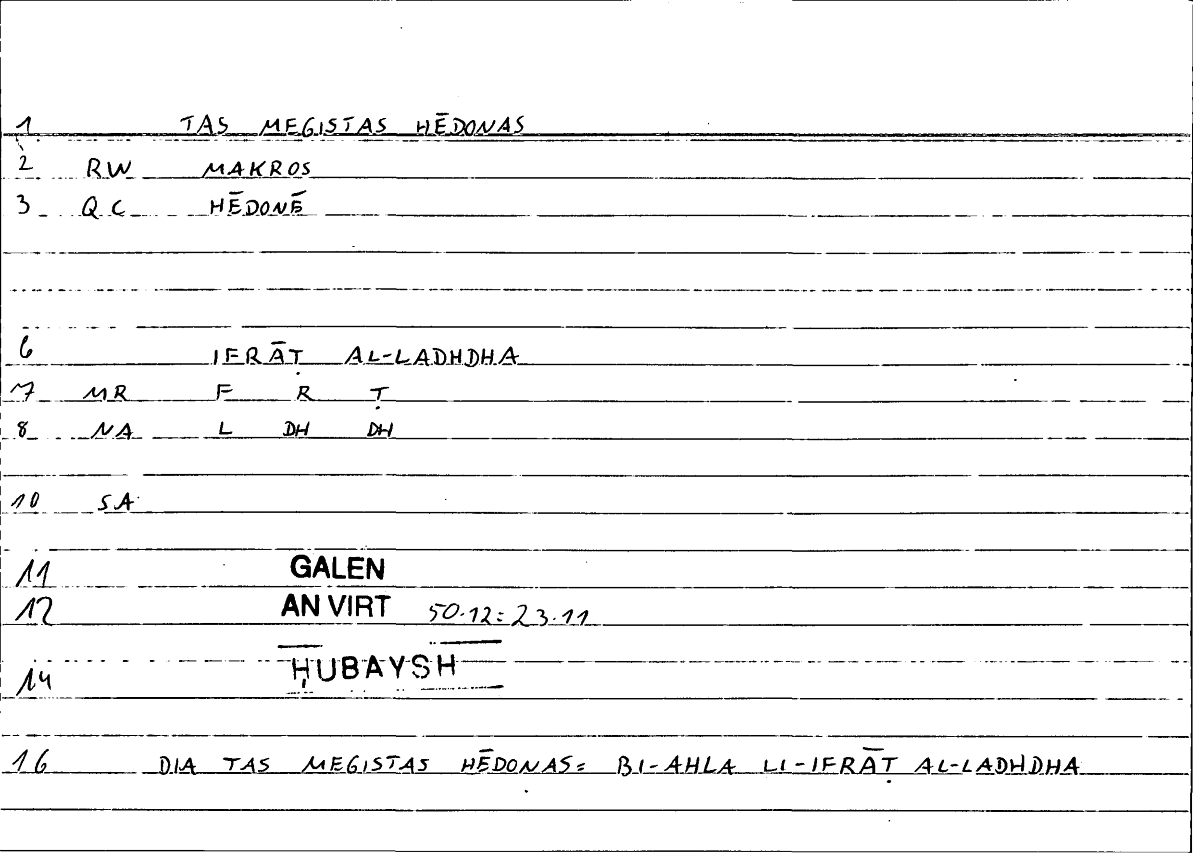 1 TAS MEGISTAS HĒDONAS
2 RW MAKROS
3 QC HĒDONĒ
6 IFRĀṬ AL-LADHDHA
7 MR F R Ṭ
8 NA L DH DH
10 SA
11 GALEN
12 AN VIRT 50.12=23.11
14 ḤUBAYSH
16 DIA TAS MEGISTAS HĒDONAS= BI-AHLA LI-IFRĀṬ AL-LADHDHA